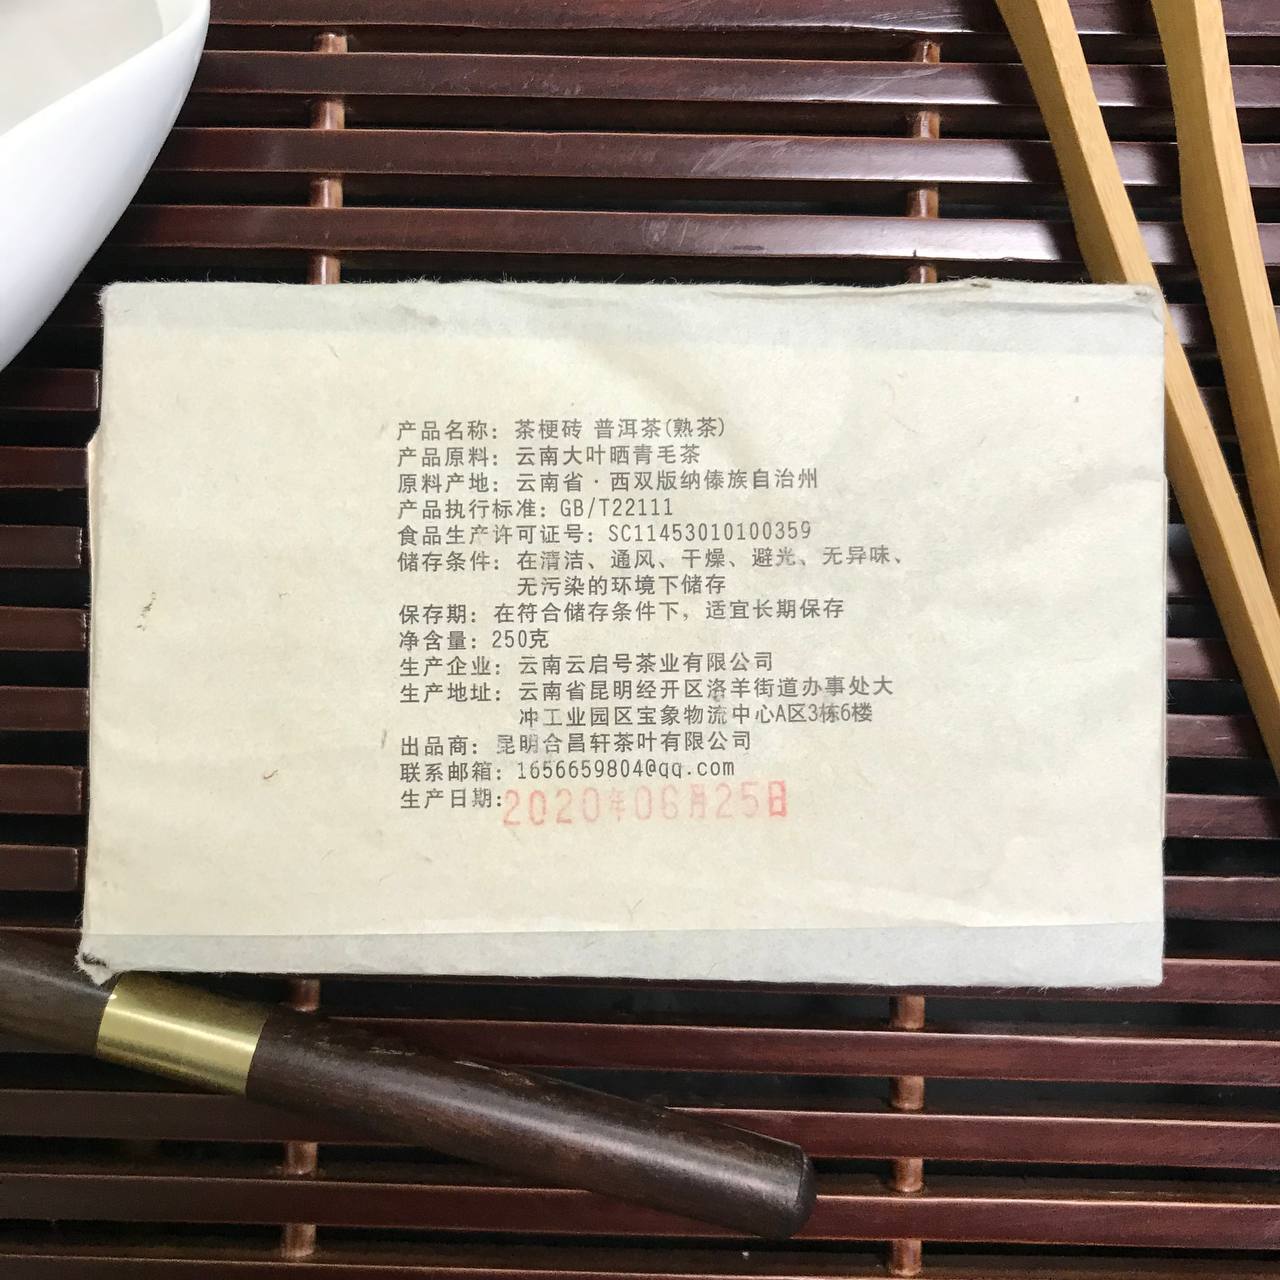 产品名称: 茶梗砖 普洱茶(熟茶)
产品原料: 云南大叶晒青毛茶
原料产地: 云南省·西双版纳傣族自治州
产品执行标准: GB/T22111
食品生产许可证号: SC11453010100359
储存条件: 在清洁、通风、干燥、避光、无异味、
无污染的环境下储存
保存期: 在符合储存条件下, 适宜长期保存
净含量: 250克
生产企业: 云南云启号茶业有限公司
生产地址: 云南省昆明经开区洛羊街道办事处大
冲工业园区宝象物流中心A区3栋6楼
出品商: 昆明合昌轩茶叶有限公司
联系邮箱: 1656659804@qq.com
生产日期: 2020年06月25日